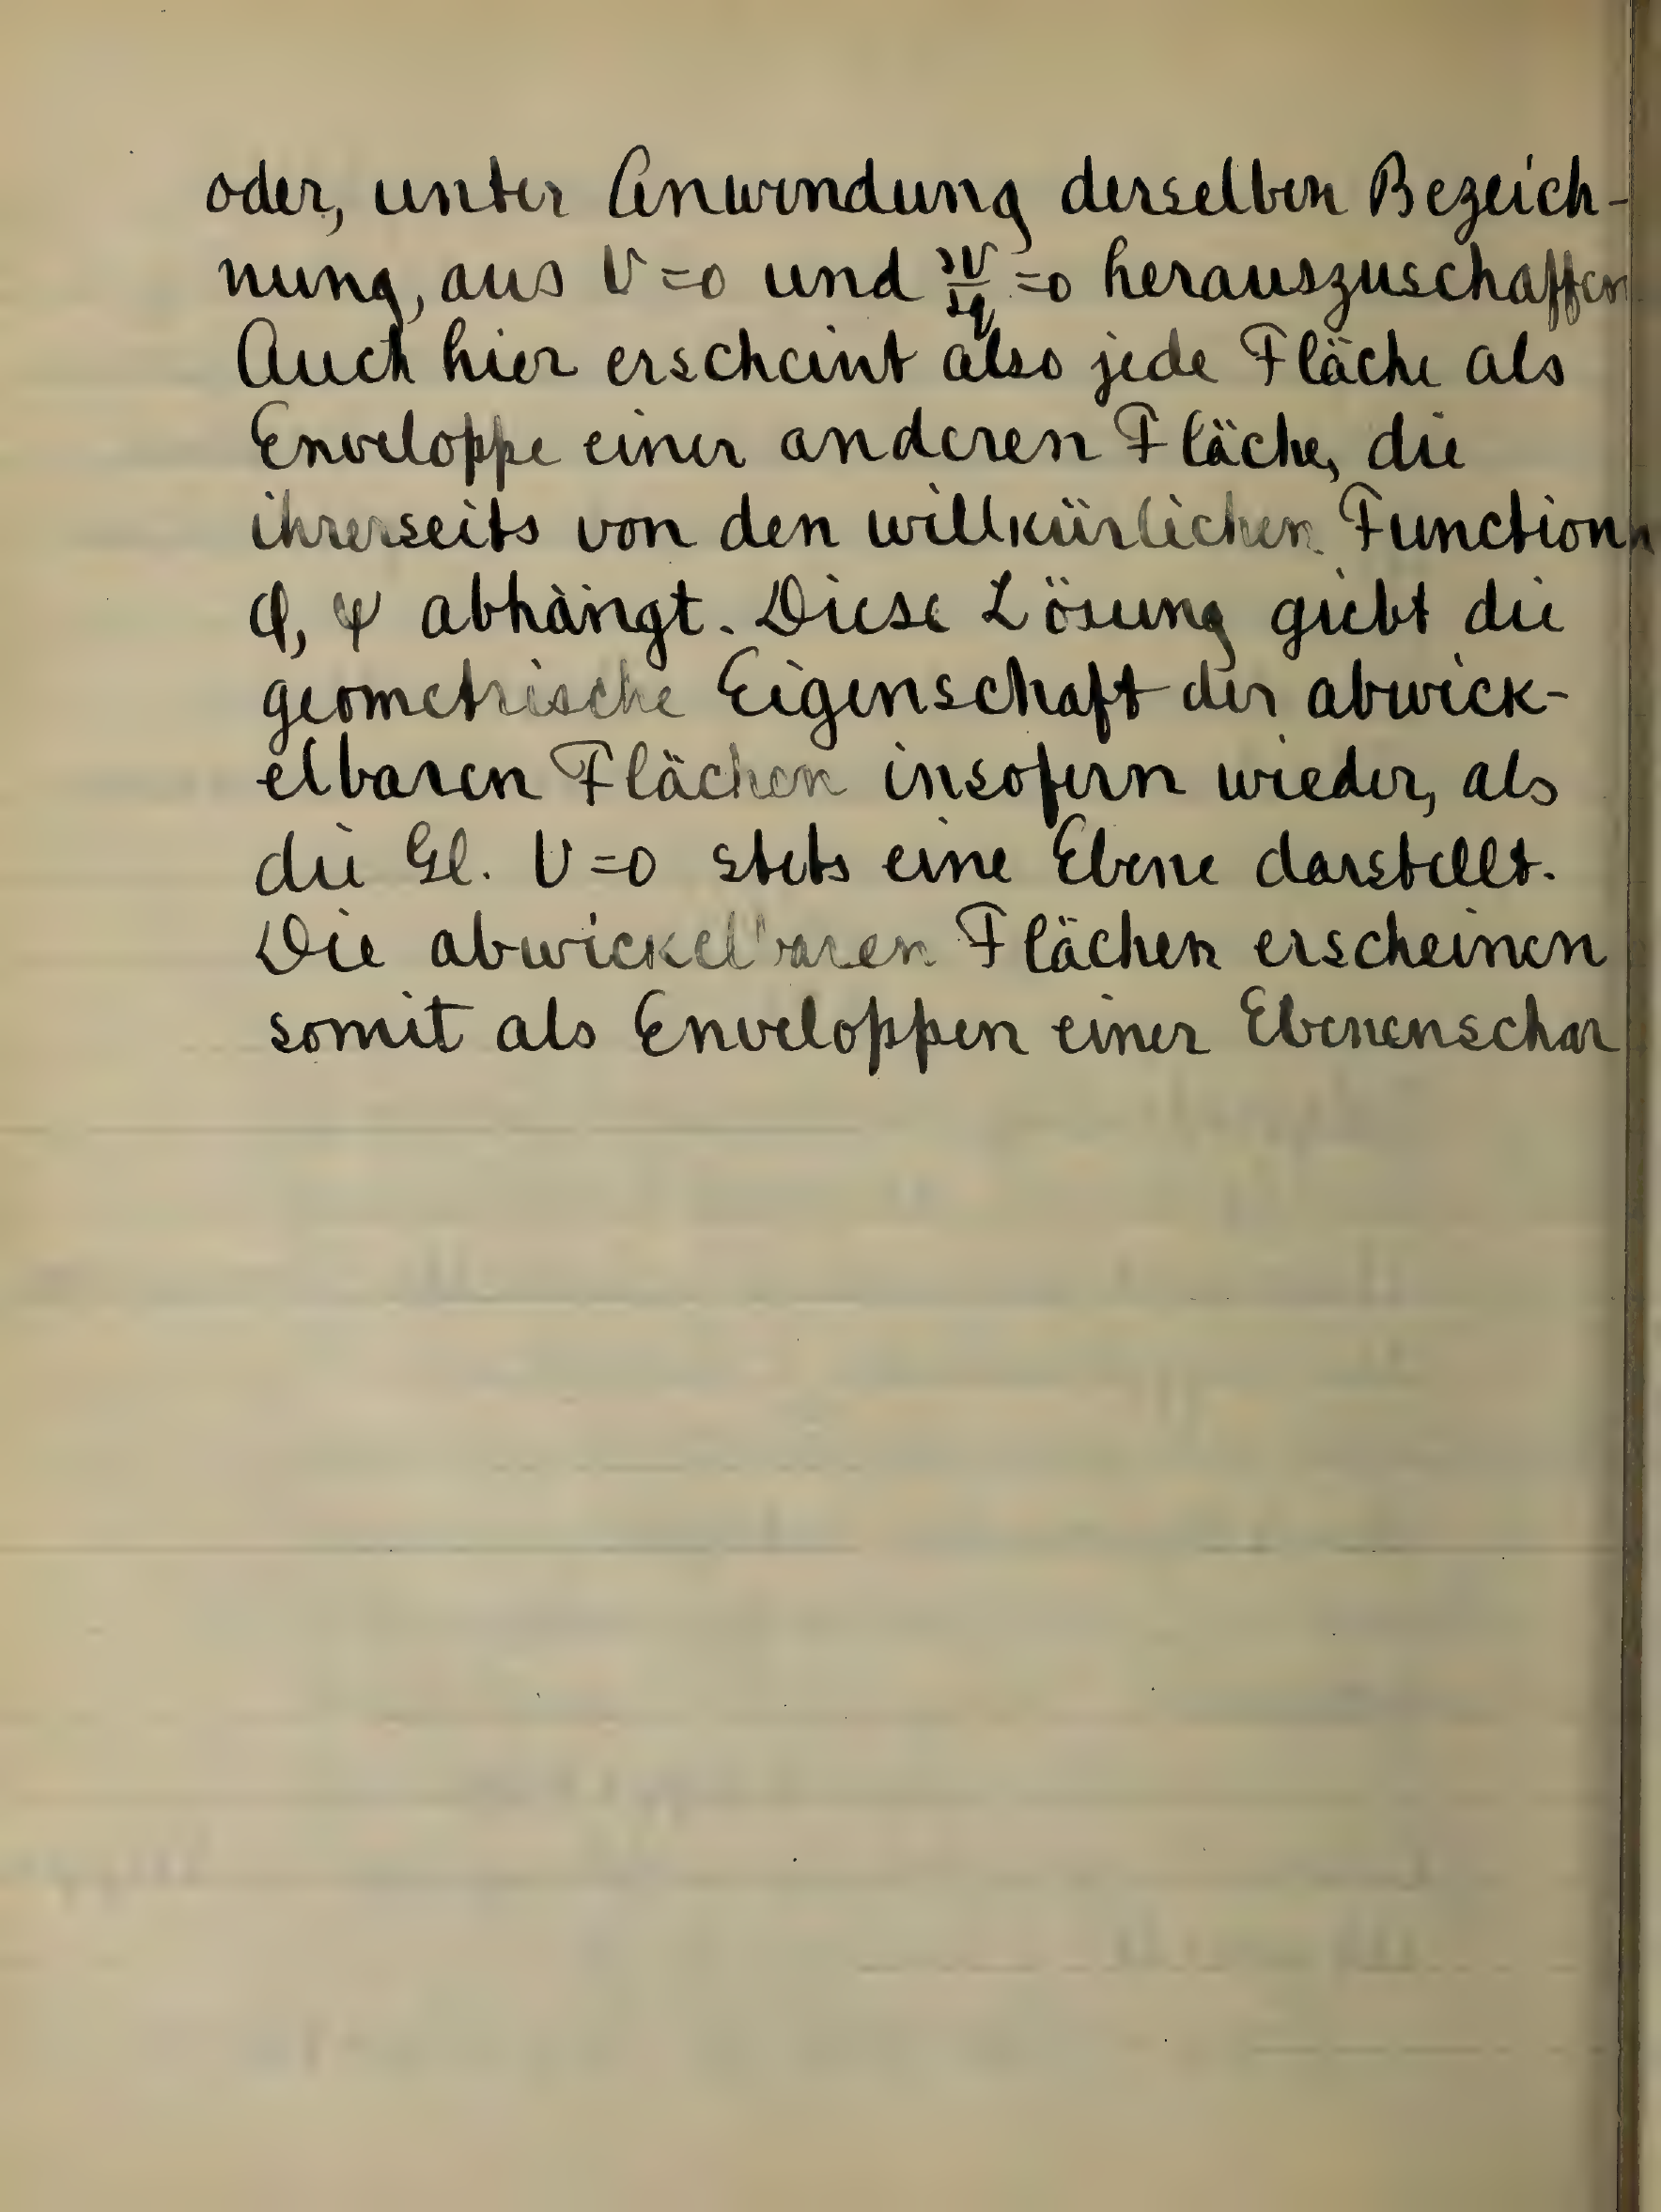 oder, unter Anwendung derselben Bezeich-
nung, aus V=0 und ∂V/∂q =0 herauszuschaffen
Auch hier erscheint also jede Fläche als
Enveloppe einer anderen Fläche, die
ihrerseits von den willkürlichen Function
φ, ψ abhängt. Diese Lösung giebt die
geometrische Eigenschaft der abwick-
elbaren Flächen insofern wieder, als
die Gl. V=0 stets eine Ebene darstellt.
Die abwickelbaren Flächen erscheinen
somit als Enveloppen einer Ebenenschar